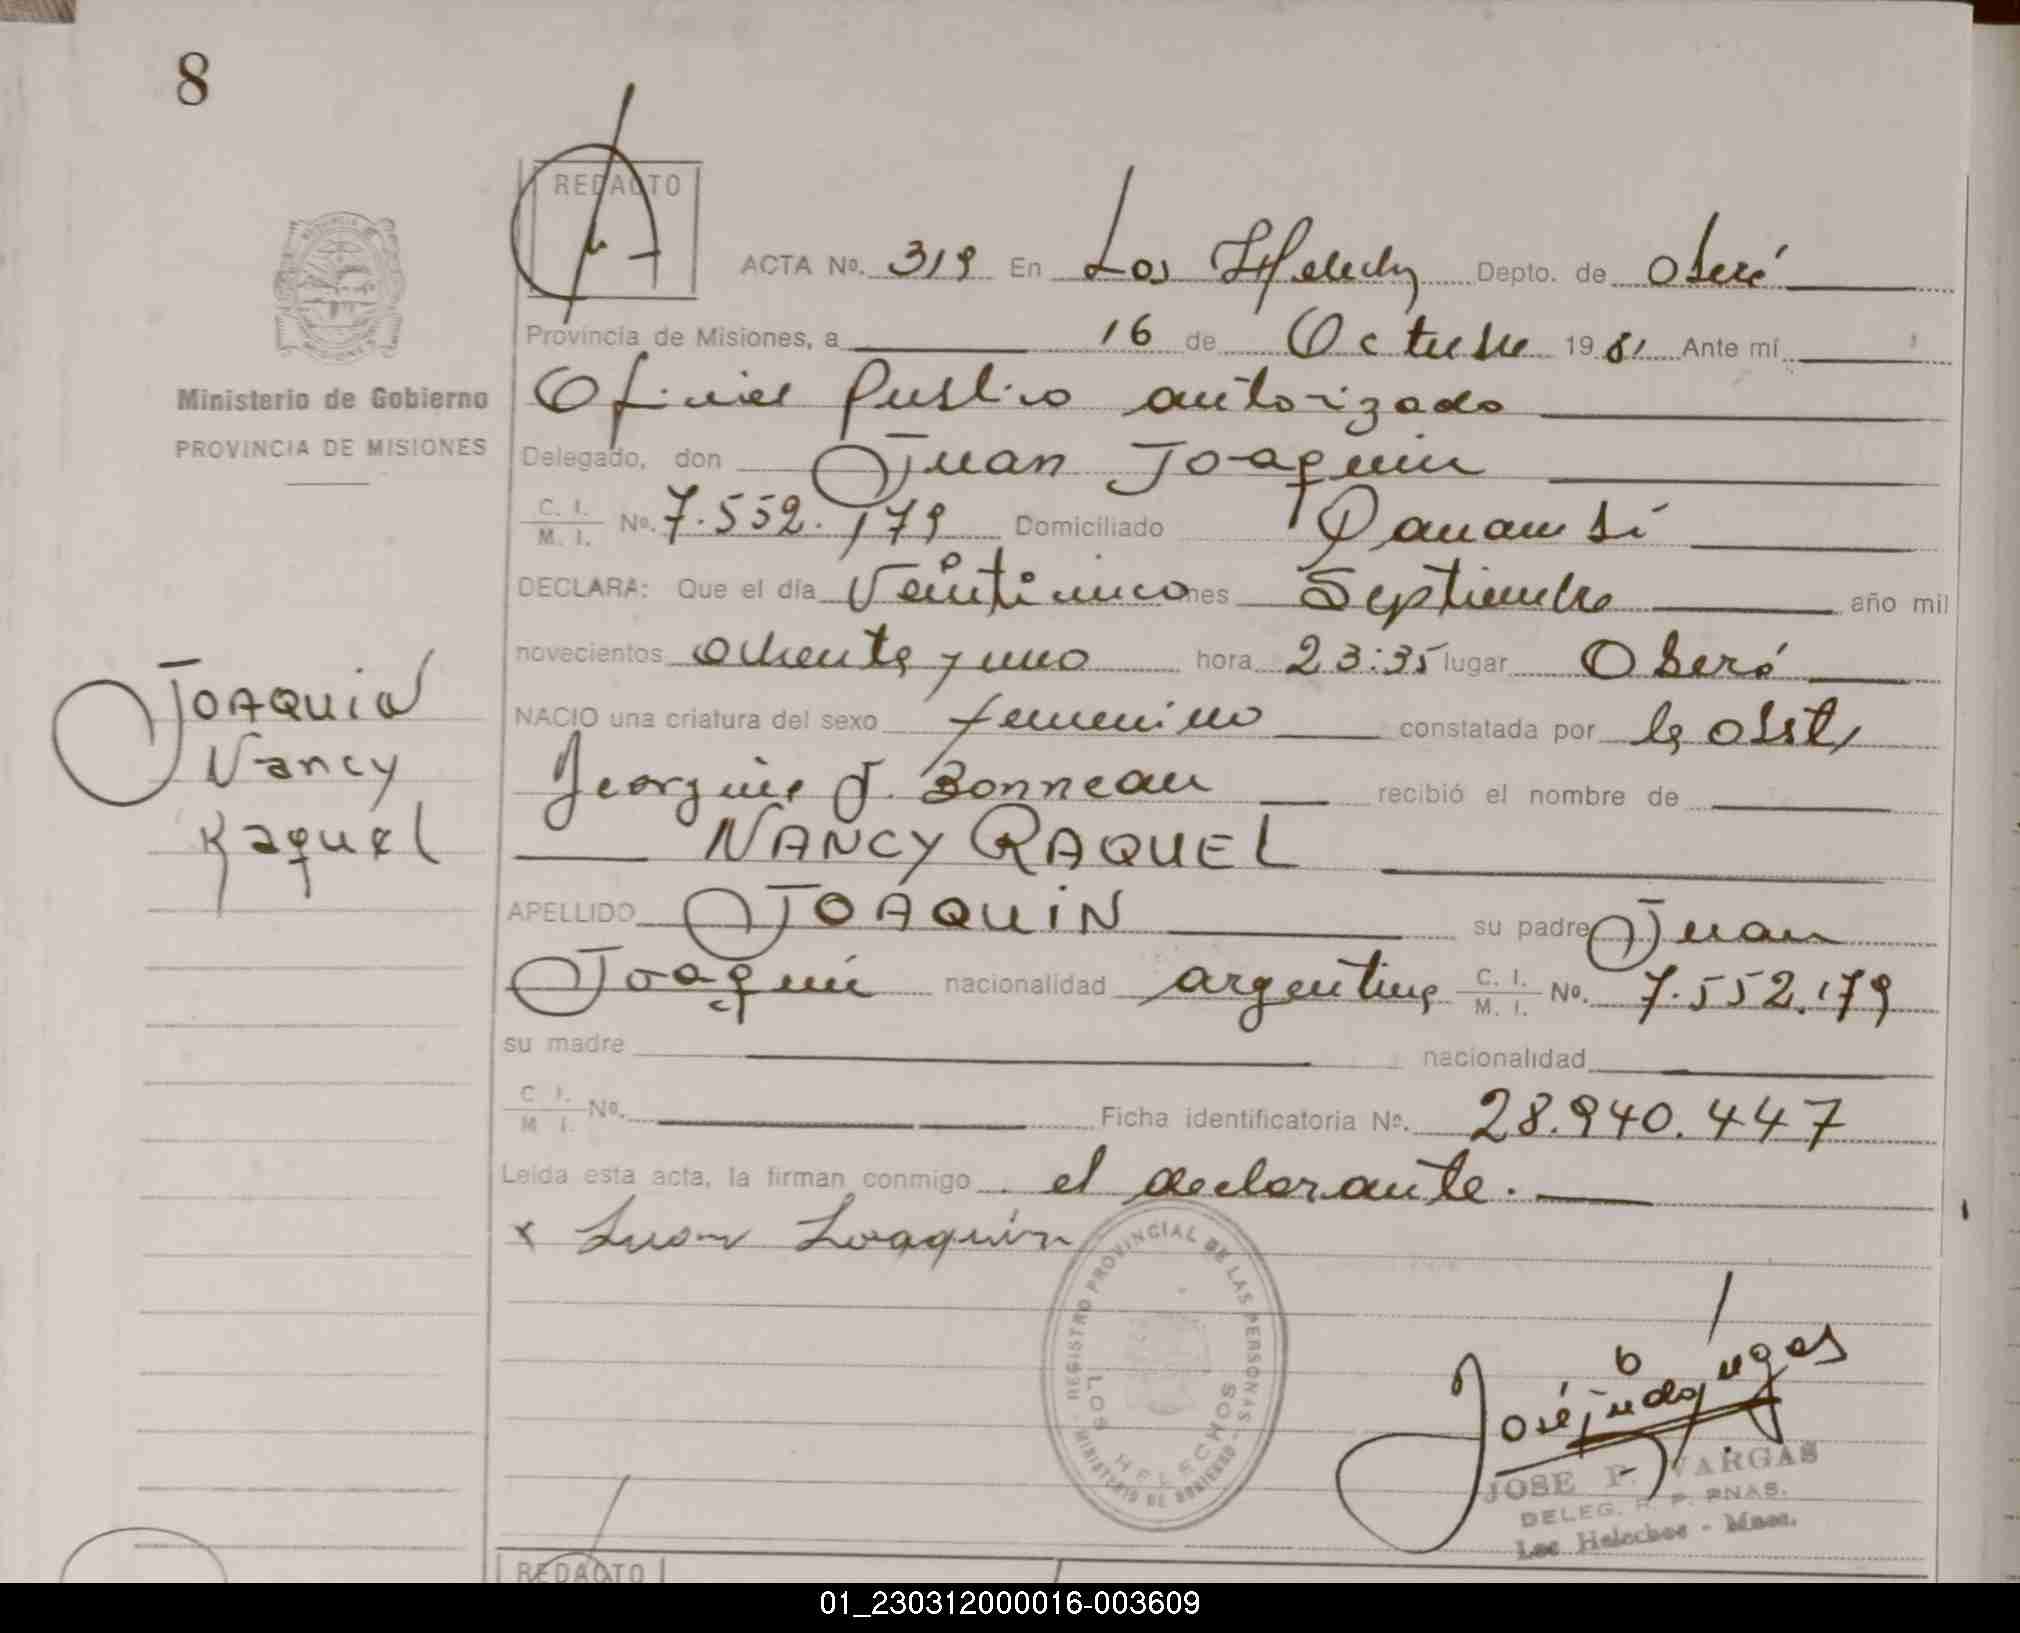 8
REDACTO
ACTA No. 319 En Los Helechos Depto. de Oberá
Provincia de Misiones, a 16 de Octubre 1981 Ante mí
Oficial Publico autorizado
Delegado, don Juan Joaquin
C. I.
M. I. No. 7.552.179 Domiciliado Panambí
DECLARA: Que el día Veinticinco mes Septiembre año mil
novecientos ochenta y uno hora 23:35 lugar Oberá
NACIO una criatura del sexo femenino constatada por la obst,
Georgina J. Bonneau recibió el nombre de
NANCY RAQUEL
APELLIDO JOAQUIN su padre Juan
Joaquin nacionalidad argentina C. I.
M. I. No. 7.552.179
su madre nacionalidad
C. I.
M. I. No. Ficha identificatoria No. 28.940.447
Leída esta acta, la firman conmigo el declarante.
x Juan Joaquín
Ministerio de Gobierno
PROVINCIA DE MISIONES
JOAQUIN
Nancy
Raquel
REGISTRO PROVINCIAL DE LAS PERSONAS
LOS HELECHOS
MINISTERIO DE GOBIERNO
JOSE F. VARGAS
DELEG. R. P. PNAS.
Los Helechos - Mnes.
REDACTO
01_230312000016-003609